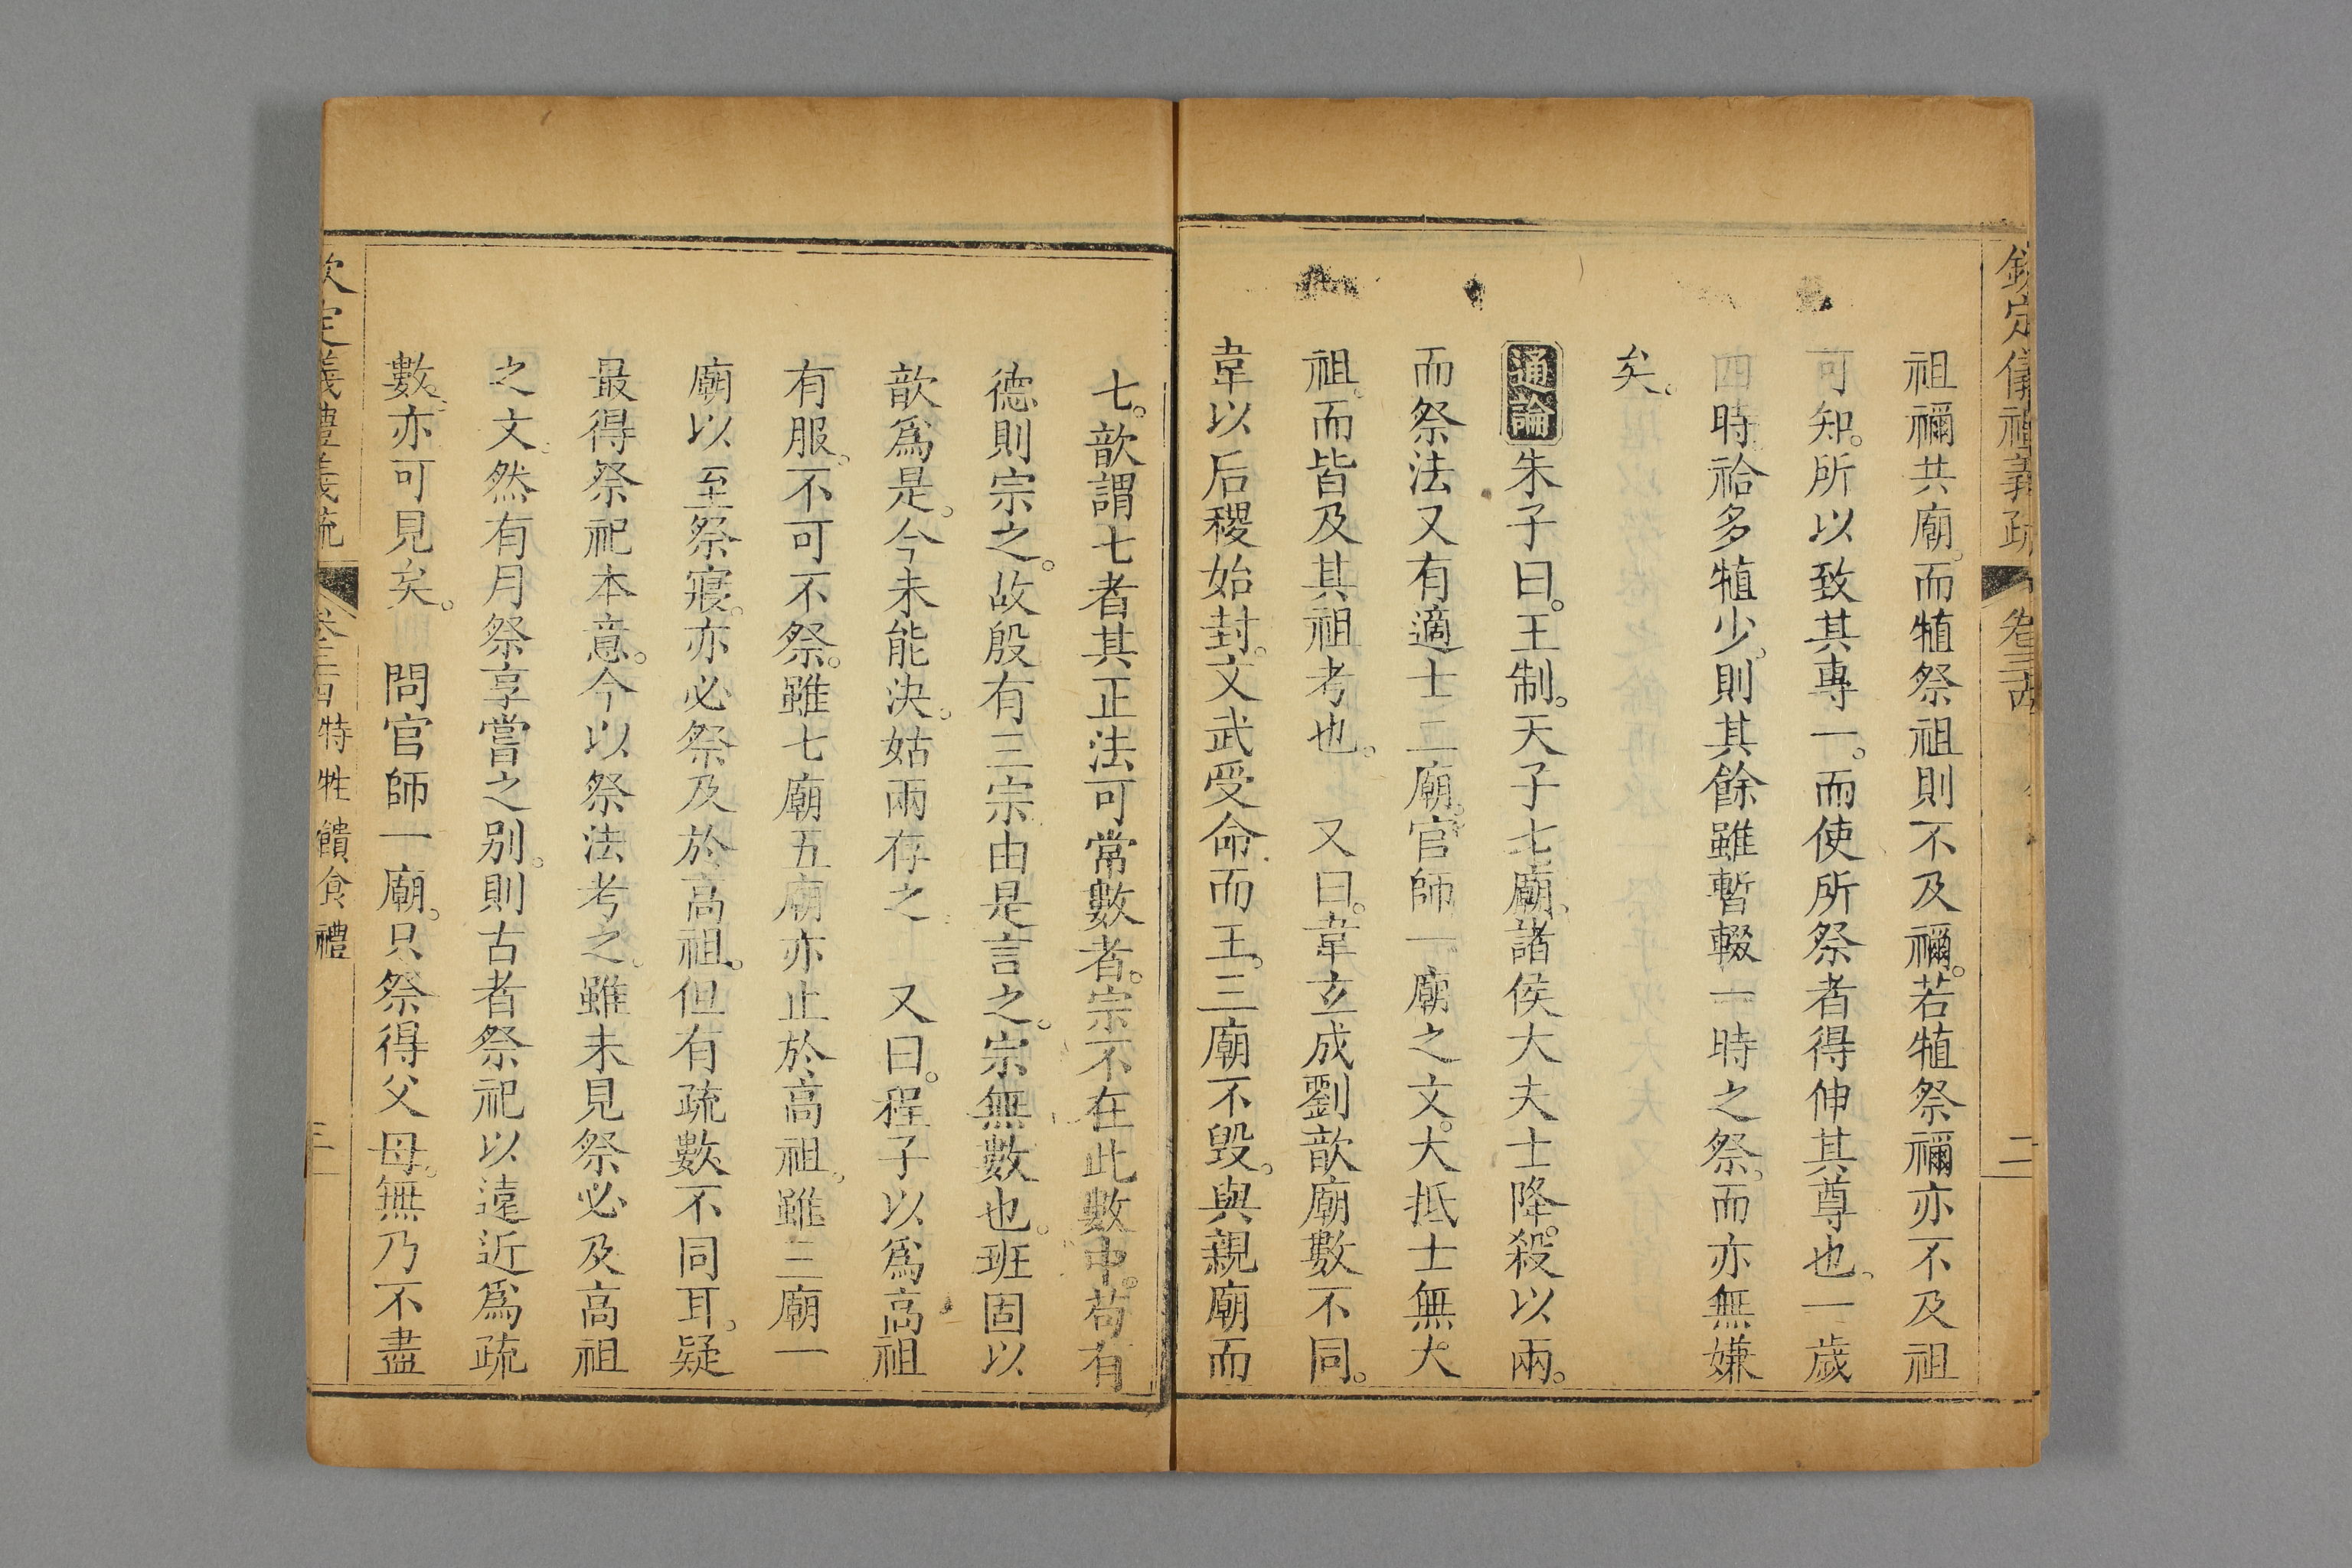 欽定儀禮義疏 卷三十四 二
祖禰共廟。而犆祭祖則不及禰。若犆祭禰亦不及祖
可知。所以致其專一。而使所祭者得伸其尊也。一歲
四時祫多犆少。則其餘雖暫輟一時之祭。而亦無嫌
矣。
通論朱子曰。王制。天子七廟。諸侯大夫士降。殺以兩。
而祭法又有適士二廟。官師一廟之文。大抵士無大
祖。而皆及其祖考也。 又曰。韋玄成劉歆廟數不同。
韋以后稷始封。文武受命而王。三廟不毀。與親廟而
七。歆謂七者其正法可常數者。宗不在此數中。苟有
德則宗之。故殷有三宗由是言之。宗無數也。班固以
歆爲是。今未能決。姑兩存之 又曰。程子以爲高祖
有服。不可不祭。雖七廟五廟亦止於高祖。雖三廟一
廟以至祭寢。亦必祭及於高祖。但有疏數不同耳。疑
最得祭祀本意。今以祭法考之。雖未見祭必及高祖
之文。然有月祭享嘗之別。則古者祭祀以遠近爲疏
數。亦可見矣。 問官師一廟。只祭得父母。無乃不盡
欽定義禮義疏 卷三十四特牲饋食禮 三